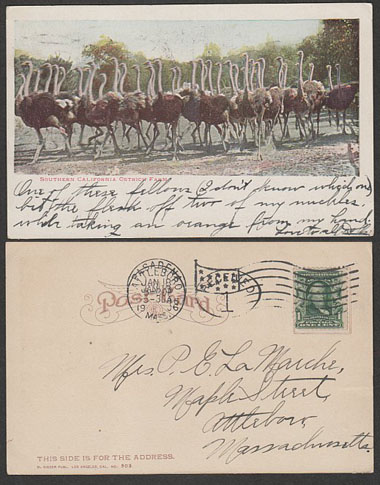 SOUTHERN CALIFORNIA OSTRICH FARM.
One of these fellows (I don't know which one)
bit the flesh off two of my nuckles
while taking an orange from my hand.
ATTLEBORO
JAN 18
3-30 A
19 06
MASS.
RECEIVED
1
Post Card
Mrs. P. E. La Marche,
Maple Street,
Attleboro
Massachusetts.
THIS SIDE IS FOR THE ADDRESS.
M. RIEDER PUBL. LOS ANGELES, CAL. NO.